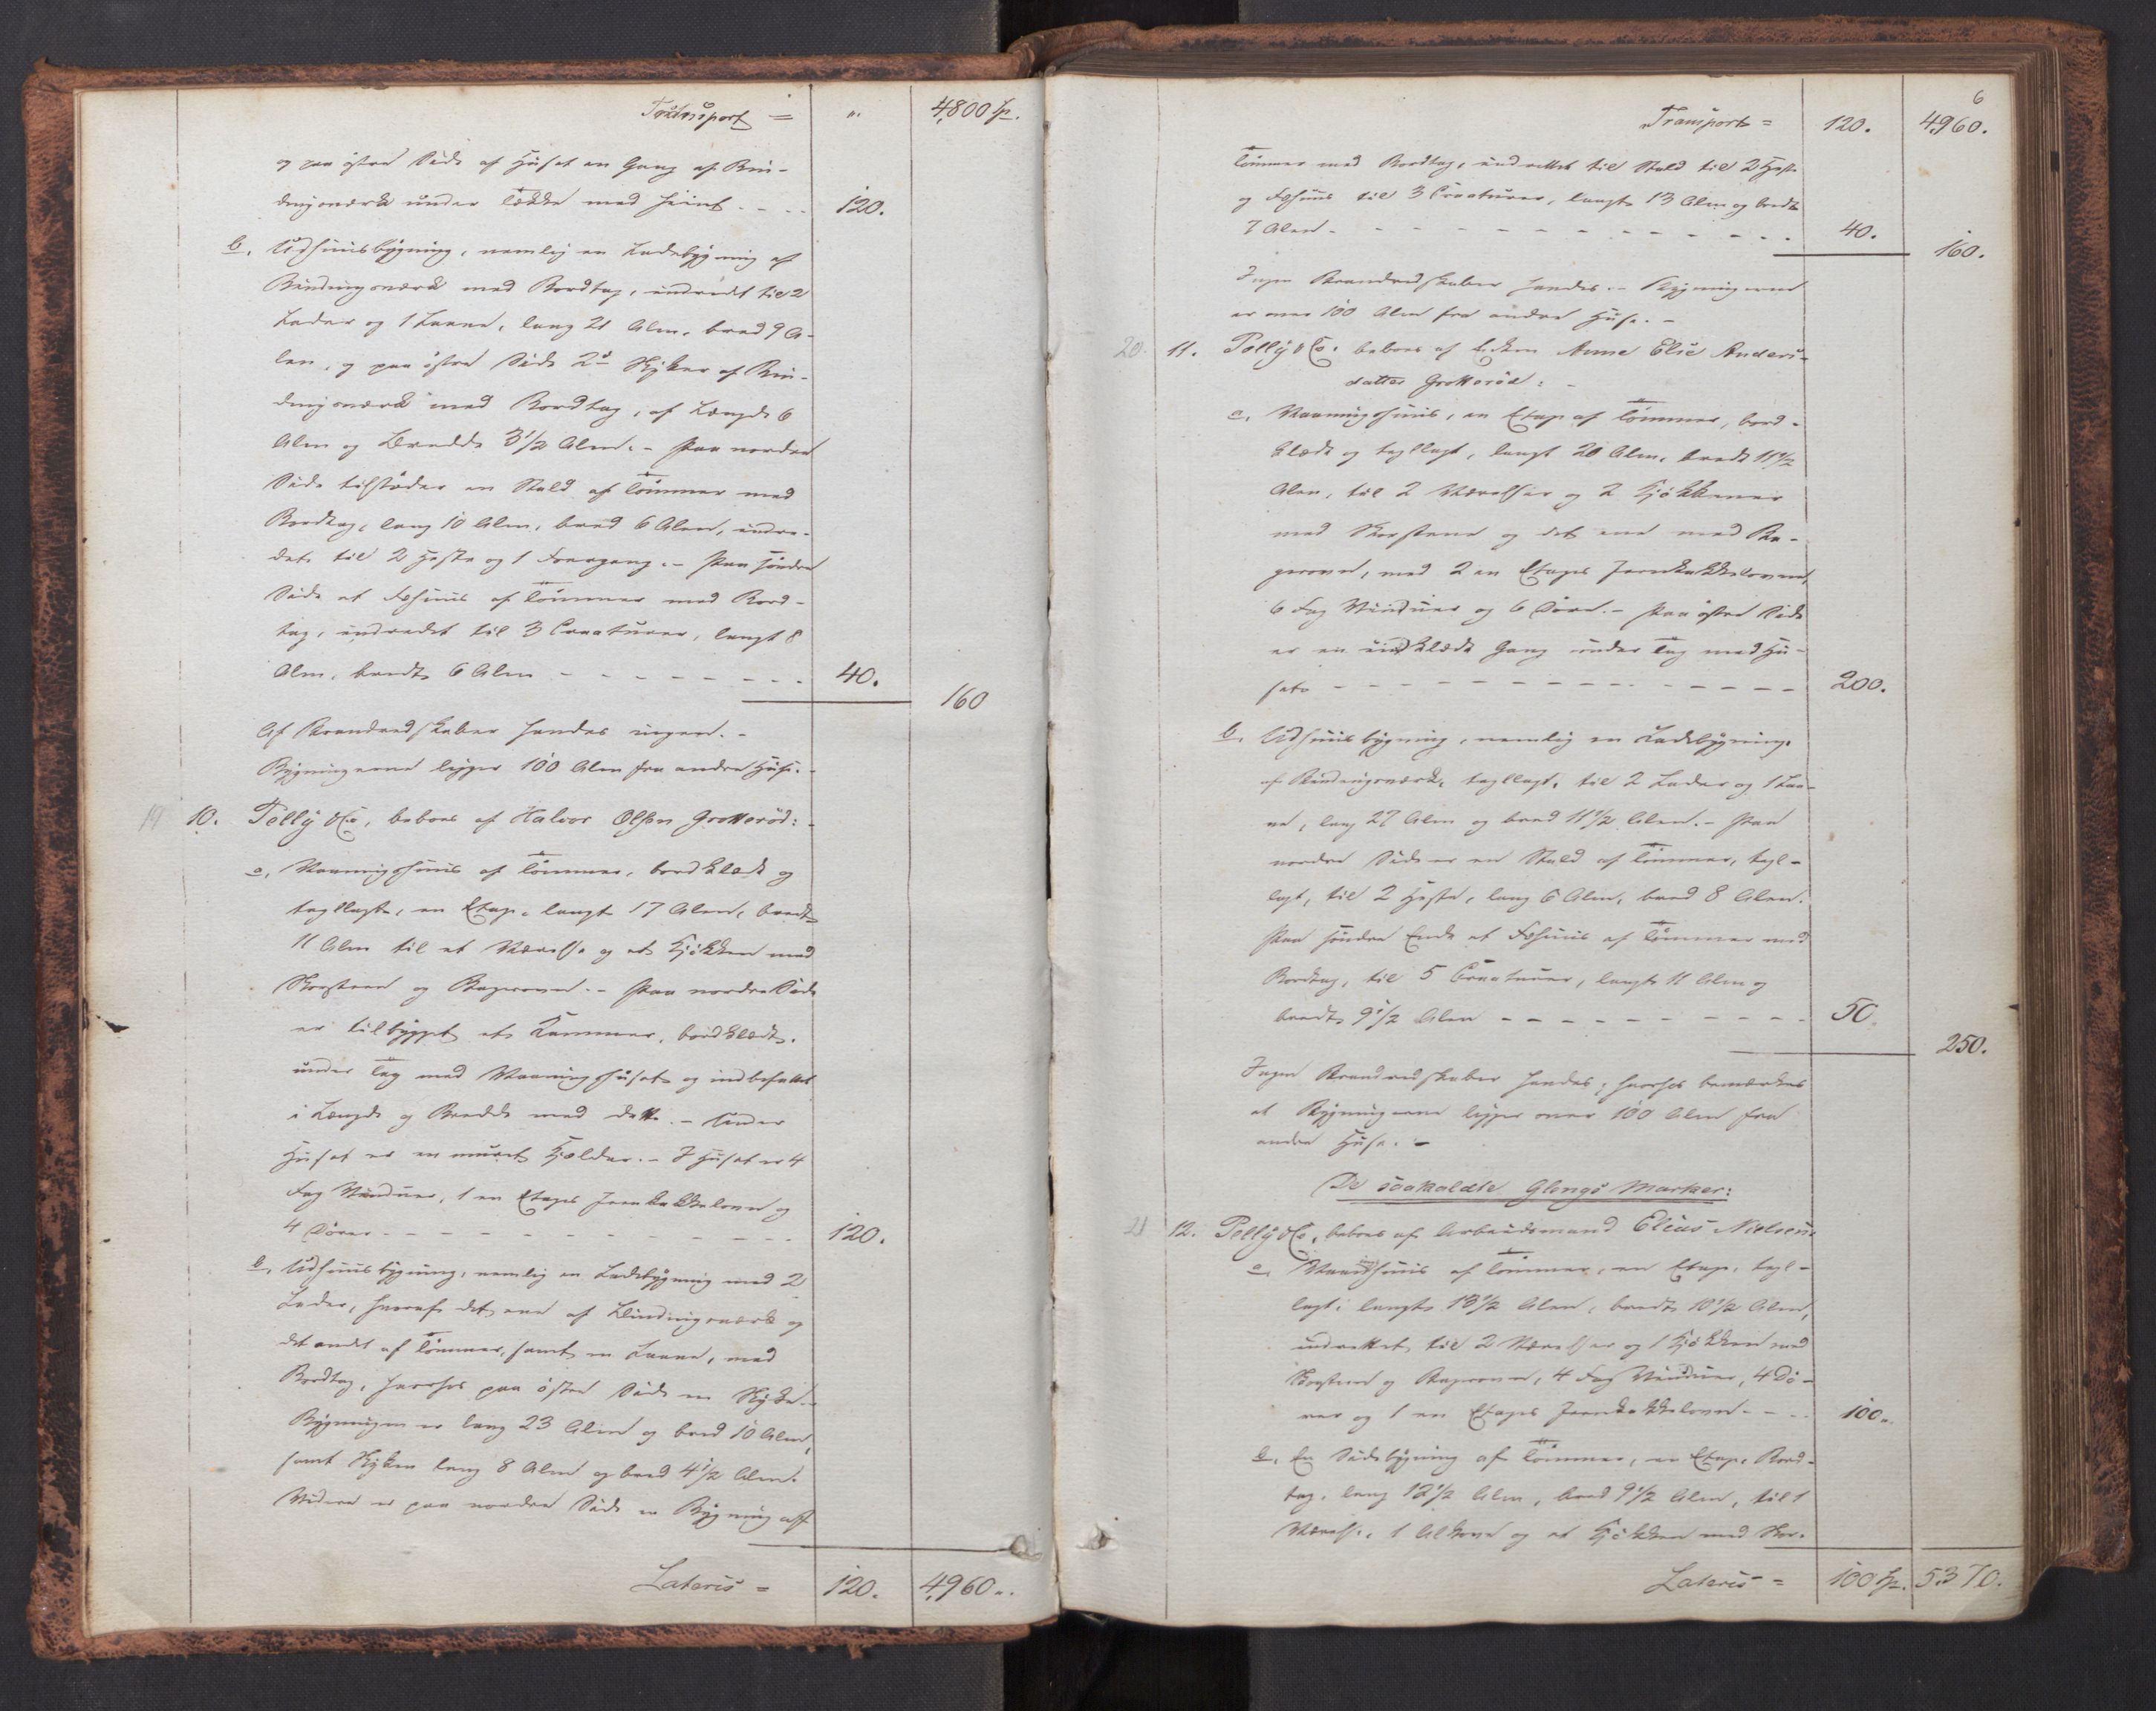 Transport = " 4,800 Sp.
og paa östre Side af Huset en Gang af Bin-
dingsværk under Tække med Huset - - - 120.
b, Udhuusbygning, nemlig en Ladebygning af
Bindingsværk med Bordtag, indredet til 2
Lader og 1 Laave, lang 21 Alen, bred 9 A-
len, og paa östre Side 2de Skykker af Bin-
dingsværk med Bordtag, af Længde 6
Alen og Bredde 3 1/2 Alen. - Paa nordre
Side tilstöder en Stald af Tömmer med
Bordtag, lang 10 Alen, bred 6 Alen, indre-
det til 2 Heste og 1 Foergang. - Paa söndre
Side et Fæhuus af Tömmer med Bord-
tag, indredet til 3 Creaturer, langt 8
Alen, bredt 6 Alen - - - - - - - - 40.
160
Af Brandredskaber haves ingen. -
Bygningerne ligger 100 Alen fra andre Huse. -
19 10. Pelly & Co, beboes af Halvor Olsen Grotteröd: -
a, Vaaningshuus af Tömmer, bordklædt og
tægllagt, en Etage, langt 17 Alen, bredt
11 Alen til et Værelse og et Kjökken med
Skorsteen og Bagerovn. - Paa nordre Side
er tilbygget et Kammer, bordklædt,
under Tag med Vaaningshuset og indbefattet
i Længde og Bredde med dette. - Under
Huset er en muret Kjelder. - I Huset er 4
Fag Vinduer, 1 en Etages Jernkakkelovn og
4 Dörer - - - - - - - - - - - 120.
b, Udhuusbygning, nemlig en Ladebygning med 2
Lader, hvoraf det ene af Bindingsværk og
det andet af Tömmer, samt en Laave, med
Bordtag, hvorhos paa östre Side en Skykke. -
Bygningen er lang 23 Alen og bred 10 Alen,
samt Skykken lang 8 Alen og bred 4 1/2 Alen.
Videre er paa nordre Side en Bygning af
Lateris = 120. 4,960 ".
6
Transport = 120. 4,960.
Tömmer med Bordtag, indrettet til Stald til 2 Heste
og Fæhuus til 3 Creaturer, langt 13 Alen og bredt
7 Alen - - - - - - - - - - - - 40.
160.
Ingen Brandredskaber haves. - Bygningerne
er over 100 Alen fra andre Huse. -
20. 11. Pelly & Co. beboes af Enken Anne Elie Anders-
datter Grotteröd: -
a, Vaaningshuus, en Etage af Tömmer, bord-
klædt og tegllagt, langt 20 Alen, bredt 11 1/2
Alen, til 2 Værelser og 2 Kjökkener
med Skorstene og det ene med Ba-
gerovn, med 2 en Etages Jernkakkelovne,
6 Fag Vinduer og 6 Döre. - Paa östre Side
er en indklædt Gang under Tag med Hu-
set - - - - - - - - - - - - - 200.
b, Udhuusbygning, nemlig en Ladebygning
af Bindingsværk, tegllagt, til 2 Lader og 1 Laa-
ve, lang 27 Alen og bred 11 1/2 Alen. - Paa
nordre Side er en Stald af Tömmer, tegl-
lagt, til 2 Heste, lang 6 Alen, bred 8 Alen.
Paa söndre Ende et Fæhuus af Tömmer med
Bordtag, til 5 Creaturer, langt 11 Alen og
bredt 9 1/2 Alen - - - - - - - - - - 50.
250.
Ingen Brandredskaber haves; hvorhos bemærkes
at Bygningerne ligger over 100 Alen fra
andre Huse. -
De saakaldte Glengs Marker:
21 12. Pelly & Co, beboes af Arbeidsmand Elias Nielsen.
a, Vaaningshuus af Tömmer, en Etage, tegl-
lagt, langt 13 1/2 Alen, bredt 10 1/2 Alen,
indrettet til 2 Værelser og 1 Kjökken med
Skorsteen og Bagerovn, 4 Fag Vinduer, 4 Dö-
rer og 1 en Etages Jernkakkelovn - - - 100 ".
b, En Sidebygning af Tömmer, en Etage, Bord-
tag, lang 12 1/2 Alen, bred 9 1/2 Alen, til 1
Værelse, 1 Alkove og et Kjökken med Skor-
Lateris = 100 Sp. 5370.